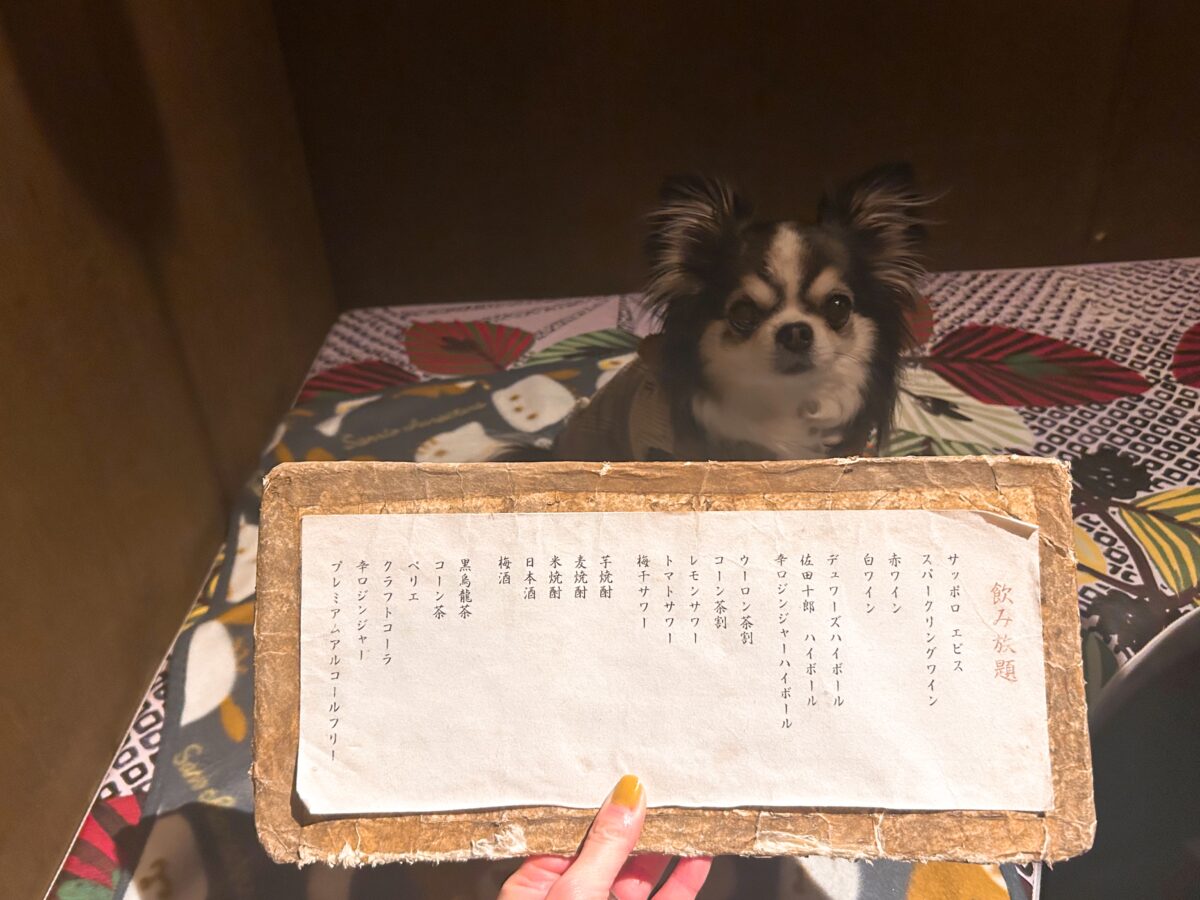 飲み放題
サッポロ エビス
スパークリングワイン
赤ワイン
白ワイン
デュワーズハイボール
佐田十郎 ハイボール
辛ロジンジャーハイボール
ウーロン茶割
コーン茶割
レモンサワー
トマトサワー
梅干サワー
芋焼酎
麦焼酎
米焼酎
日本酒
梅酒
黒烏龍茶
コーン茶
ペリエ
クラフトコーラ
辛ロジンジャー
プレミアムアルコールフリー